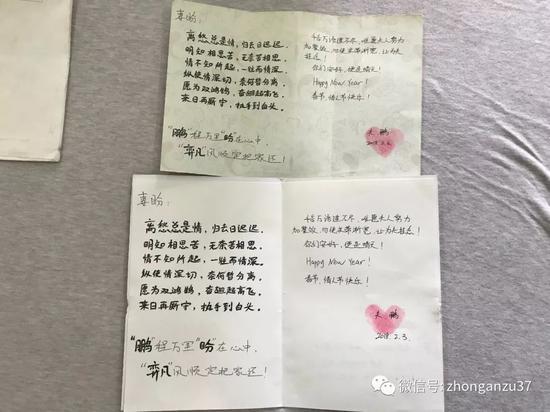 寿盼：
离愁总是情，归去日迟迟。
明知相思苦，无奈苦相思。
情不知所起，一往而情深。
纵使情深切，奈何暂分离。
愿为双鸿鹄，奋翅起高飞。
来日再厮守，执手到白头。
"鹏"程万里"盼"在心中，
"弈凡"风顺定把家还！
千言万语道不尽，唯愿夫人努力
加餐饭
你们安好，便是晴天！
Happy New Year！
春节、情人节快乐！
大鹏
2018.2.3.
寿盼：
离愁总是情，归去日迟迟。
明知相思苦，无奈苦相思。
情不知所起，一往而情深。
纵使情深切，奈何暂分离。
愿为双鸿鹄，奋翅起高飞。
来日再厮守，执手到白头。
"鹏"程万里"盼"在心中，
"弈凡"风顺定把家还！
千言万语道不尽，唯愿夫人努力
加餐饭
你们安好，便是晴天！
Happy New Year！
春节、情人节快乐！
大鹏
2018.2.3.
微信号: zhonganzu37